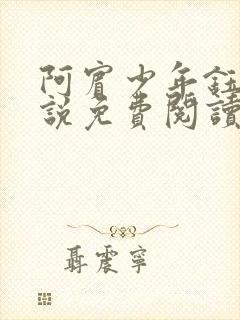 阿賓少年鈺
說免費閱讀
聶震寧